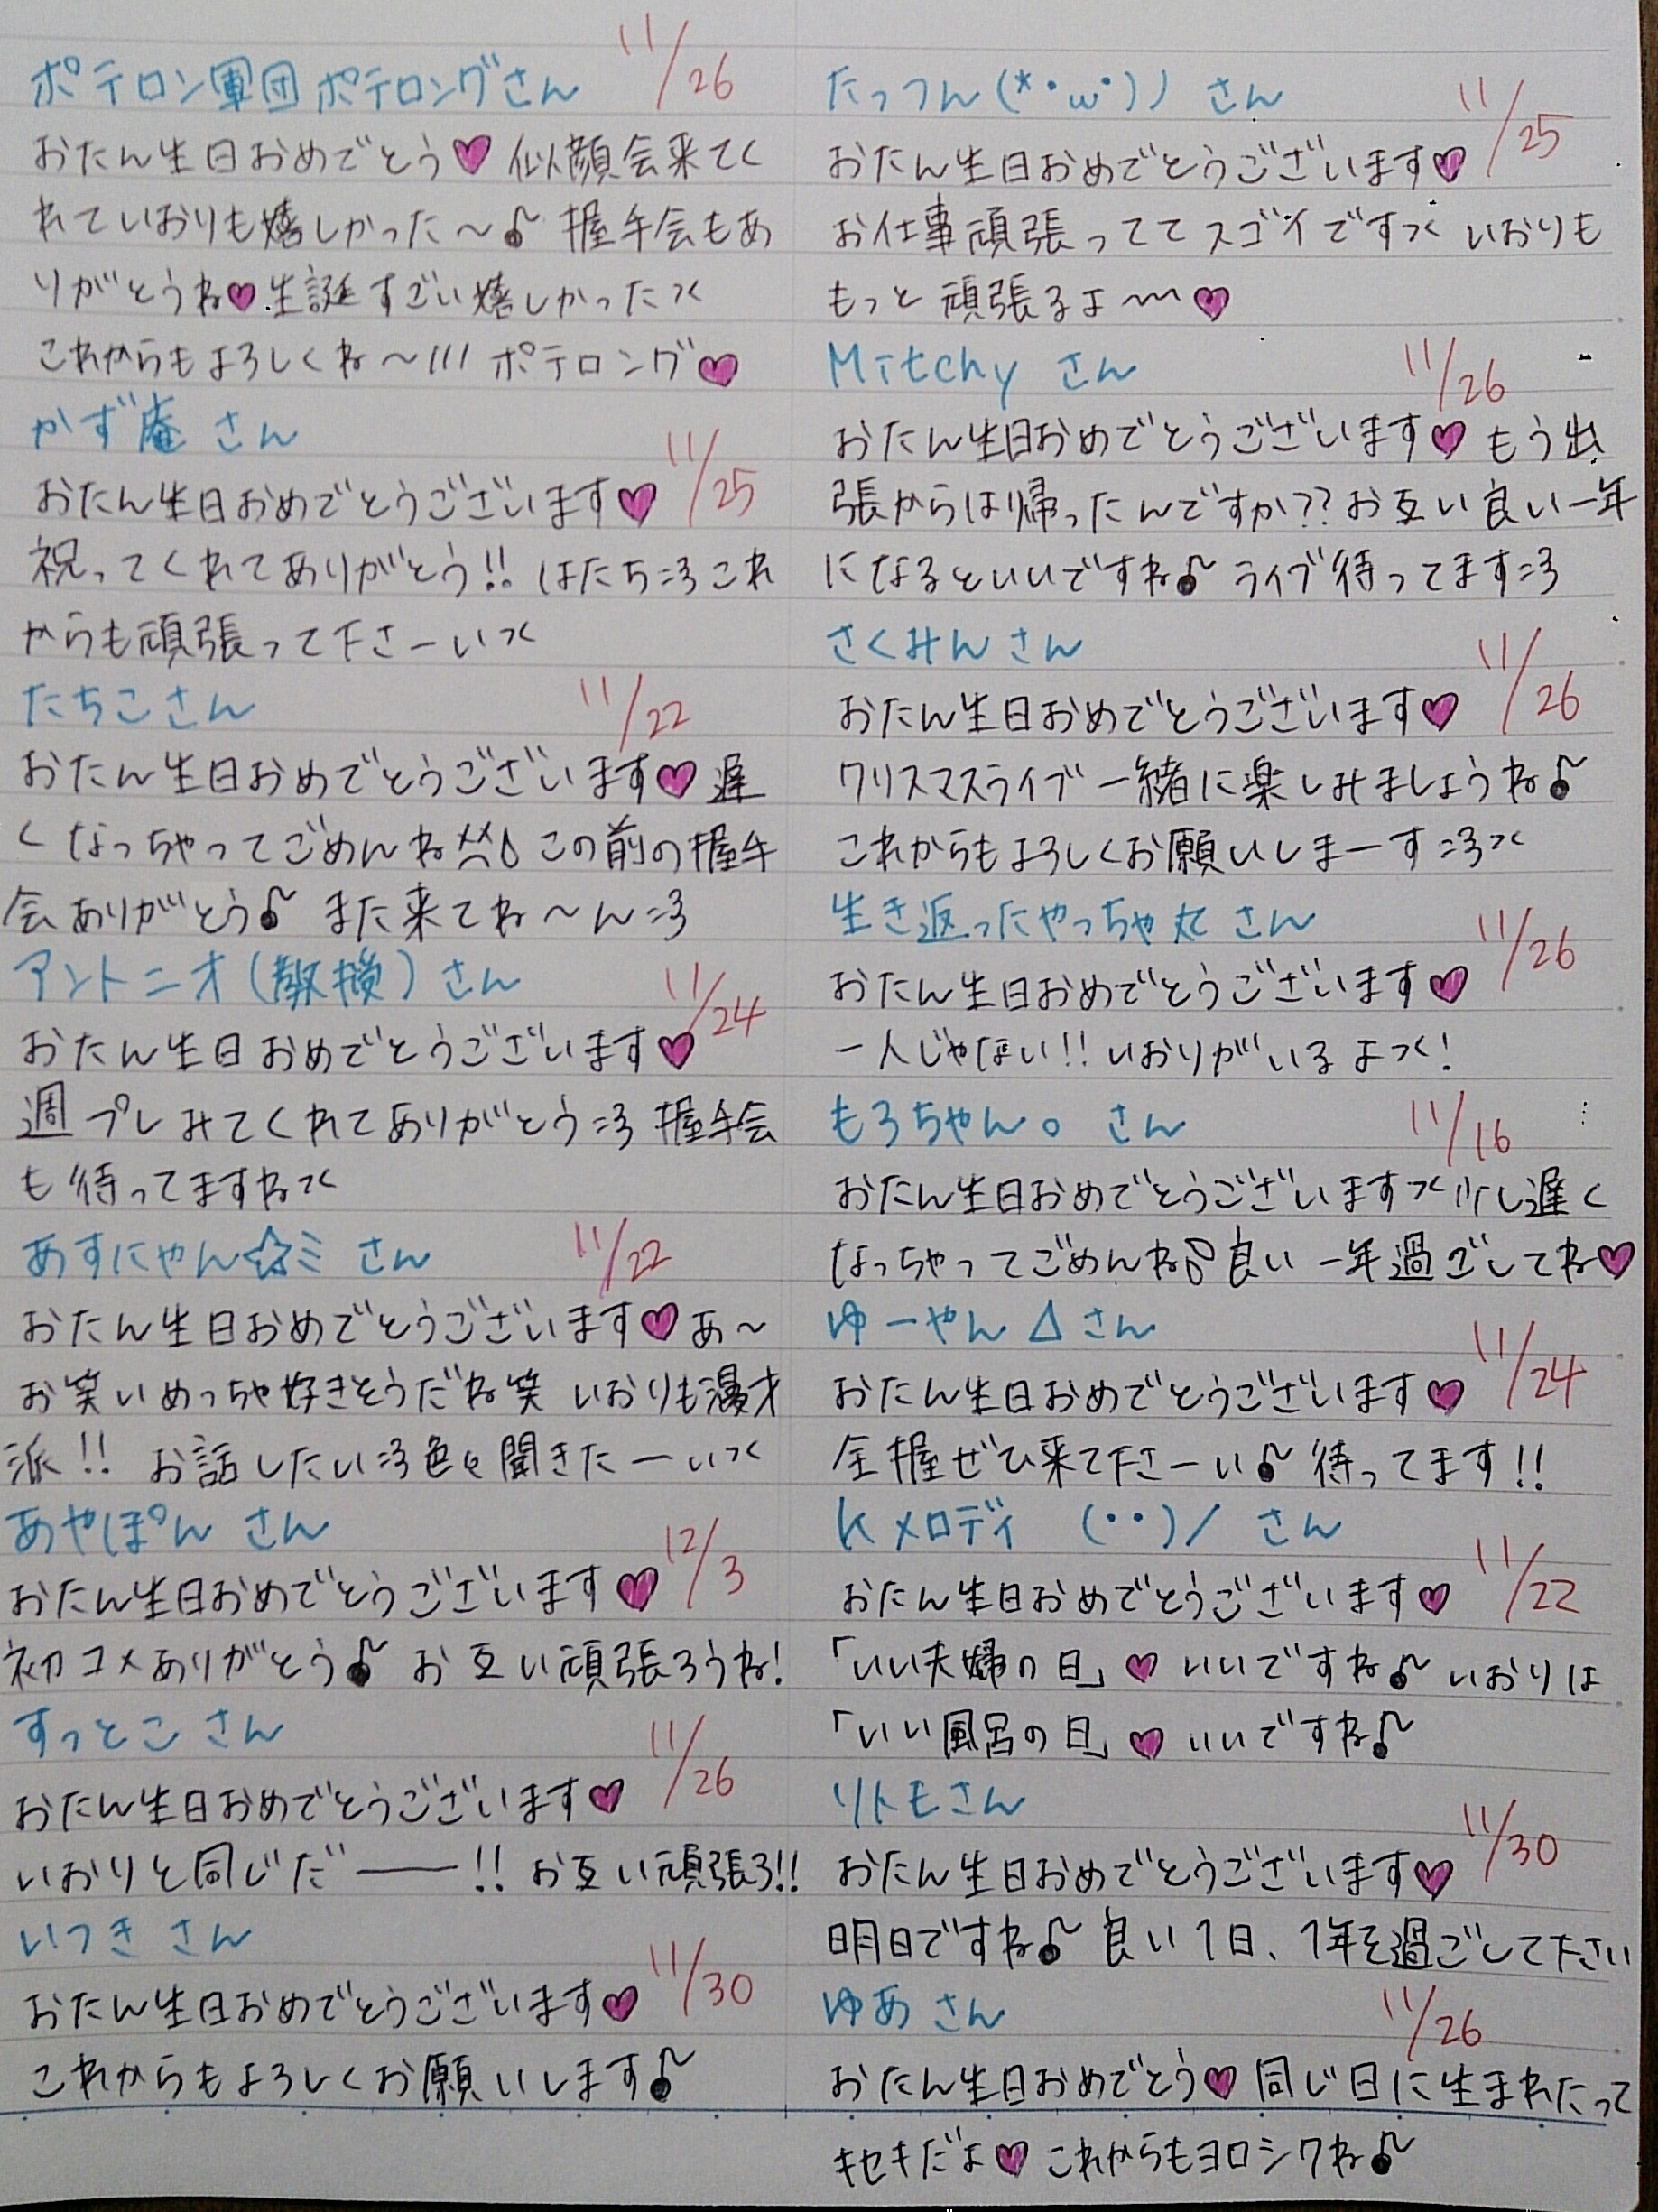 ポテロン軍団ポテロングさん 11/26
おたん生日おめでとう♥ 似顔会来てく
れていおりも嬉しかった〜♪ 握手会もあ
りがとうね♥生誕すごい嬉しかった
これからもよろしくね〜!!! ポテロング♥
かず庵 さん 11/25
おたん生日おめでとうございます♥
祝ってくれてありがとう!! はたち これ
からも頑張って下さーい
たちこさん 11/22
おたん生日おめでとうございます♥ 遅
くなっちゃってごめんね この前の握手
会ありがとう♪ また来てね〜ん
アントニオ( )さん 11/24
おたん生日おめでとうございます♥
週プレみてくれてありがとう 握手会
も待ってますね
あすにゃん☆ミ さん 11/22
おたん生日おめでとうございます♥ あ〜
お笑いめっちゃ好きそうだね笑 いおりも漫才
派!! お話したい 色々聞きたーい
あやぽん さん 12/3
おたん生日おめでとうございます♥
初コメありがとう♪ お互い頑張ろうね!
すっとこ さん 11/26
おたん生日おめでとうございます♥
いおりと同じだー!! お互い頑張ろ!!
いつき さん 11/30
おたん生日おめでとうございます♥
これからもよろしくお願いします♪
たっつん(*・ω・)ノ さん 11/25
おたん生日おめでとうございます♥
お仕事頑張っててスゴイです いおりも
もっと頑張るよ〜♥
Mitchy さん 11/26
おたん生日おめでとうございます♥ もう出
張からは帰ったんですか??お互い良い一年
になるといいですね♪ ライブ待ってます
さくみんさん 11/26
おたん生日おめでとうございます♥
クリスマスライブ一緒に楽しみましょうね♪
これからもよろしくお願いしまーす
生き返ったやっちゃ丸さん 11/26
おたん生日おめでとうございます♥
一人じゃない!! いおりがいるよ!
もろちゃん。 さん 11/16
おたん生日おめでとうございます 少し遅く
なっちゃってごめんね 良い一年過ごしてね♥
ゆーやん△さん 11/24
おたん生日おめでとうございます♥
全握ぜひ来て下さーい♪ 待ってます!!
Kメロディ (・・)/ さん 11/22
おたん生日おめでとうございます♥
「いい夫婦の日」♥ いいですね♪ いおりは
「いい風呂の日」♥ いいですね♪
リトモさん 11/30
おたん生日おめでとうございます♥
明日ですね♪ 良い1日、1年を過ごして下さい
ゆあ さん 11/26
おたん生日おめでとう♥ 同じ日に生まれたって
キセキだよ♥ これからもヨロシクね♪